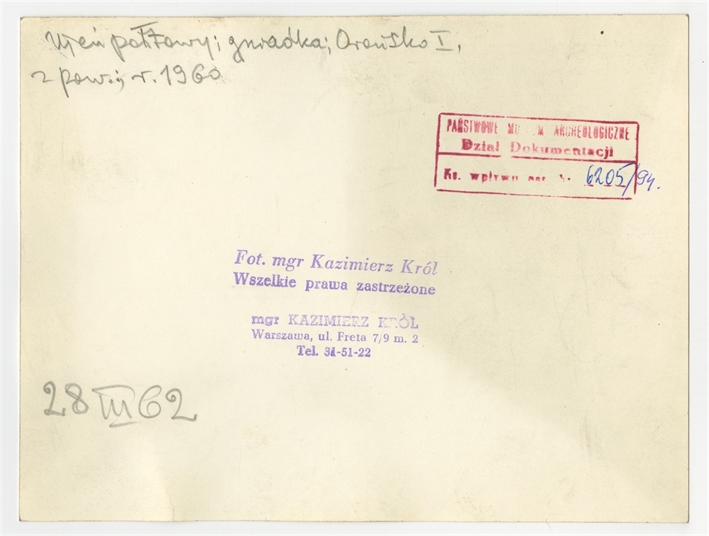 gniazdka; Orońsko I.
z pow.; r. 1960
PAŃSTWOWE ARCHEOLOGICZNE
Dział Dokumentacji
Ks. wpływu 6205/94.
Fot. mgr Kazimierz Król
Wszelkie prawa zastrzeżone
mgr KAZIMIERZ KRÓL
Warszawa, ul. Freta 7/9 m. 2
Tel. 31-51-22
28 III 62